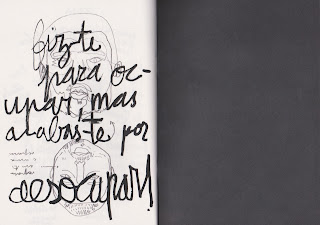 fiz-te
para oc-
upar, mas
acabas-te por
desocupar!